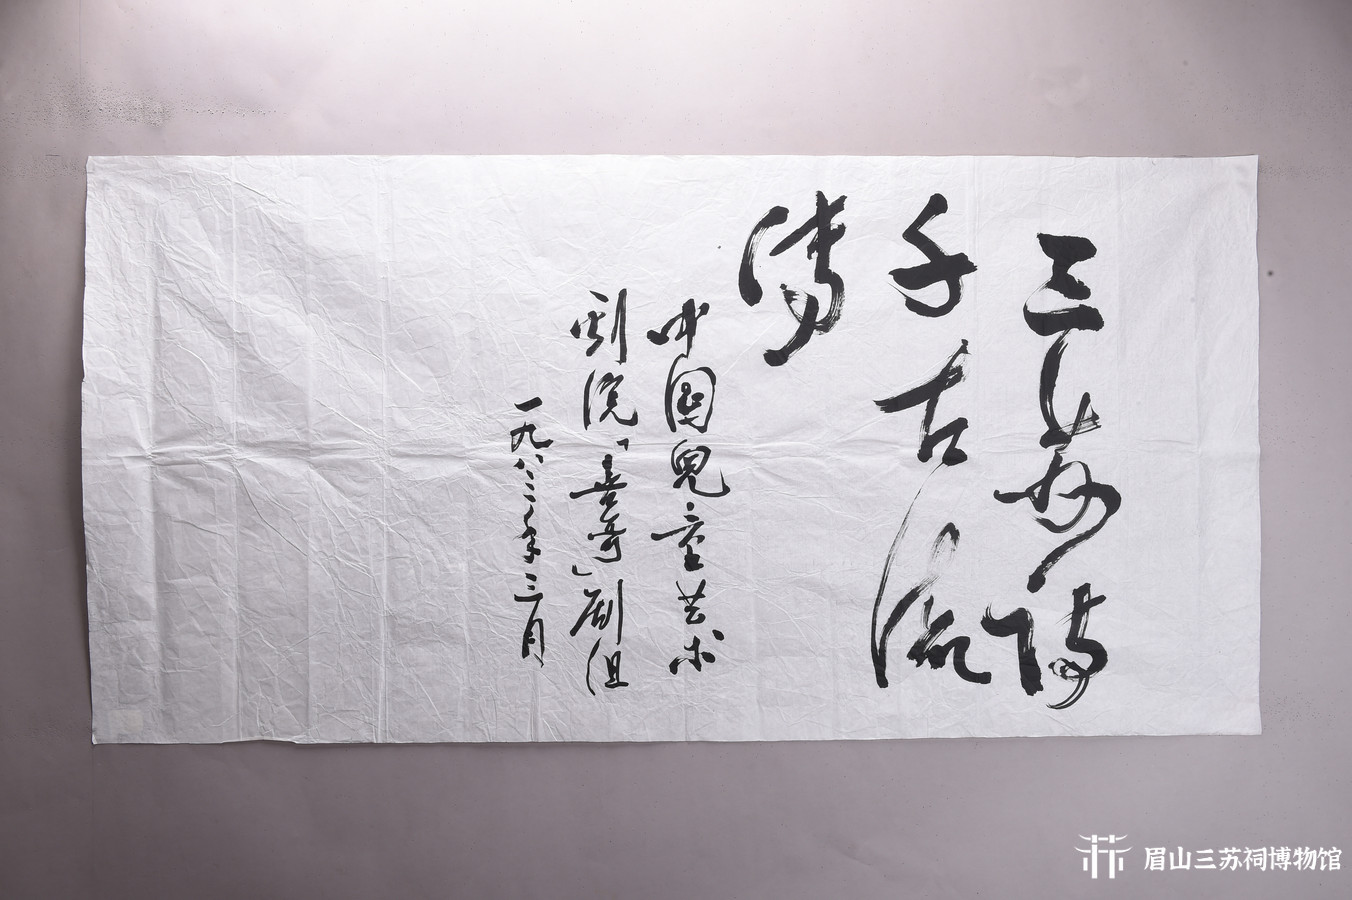 三苏诗
千古流
傳
中國兒童艺术
剧院「喜哥」剧组
一九八二年三月
眉山三苏祠博物馆